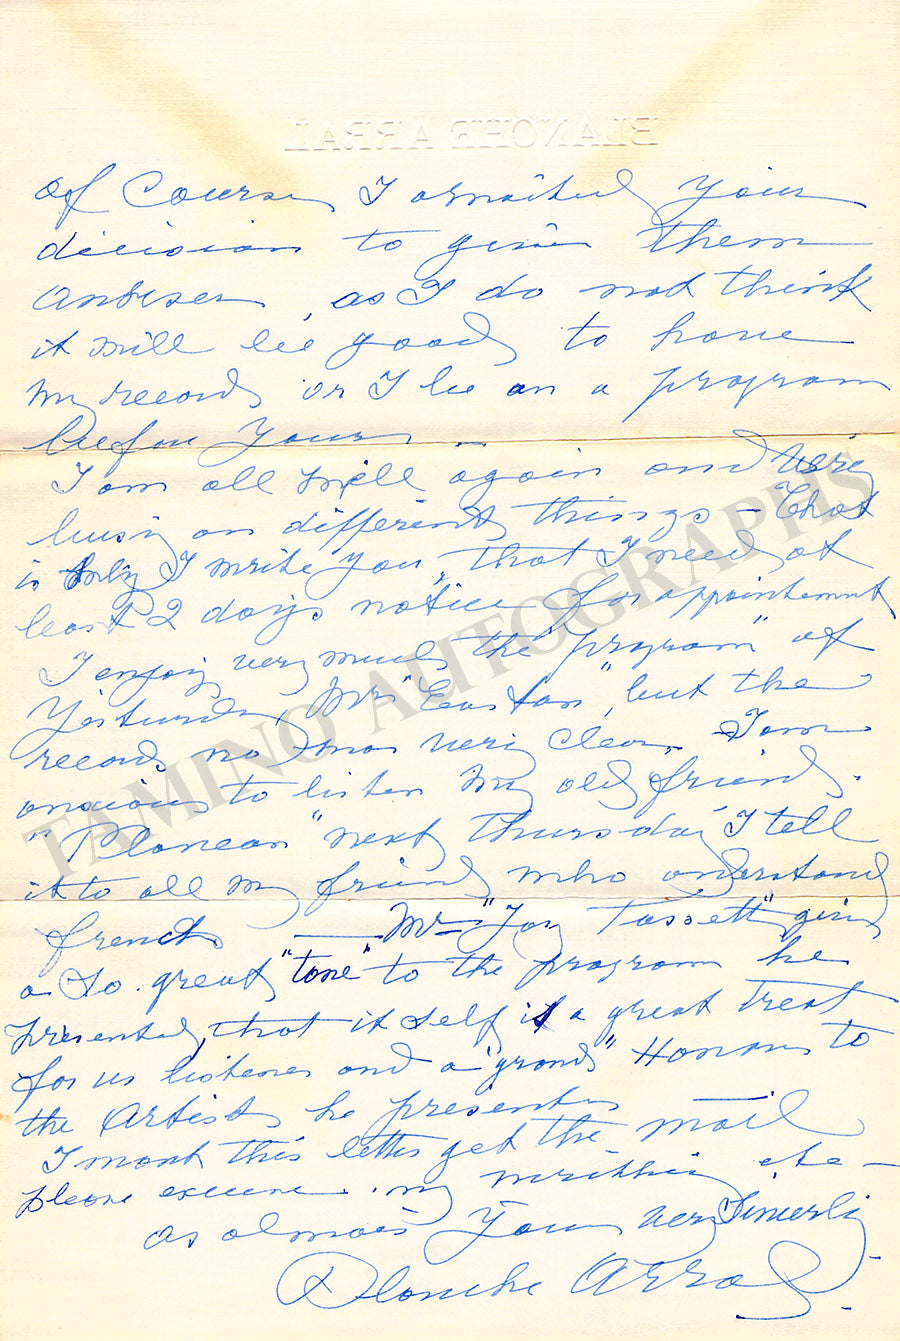 BLANCHE ARRAL
of Course I awaited your
decision to give them
Answer, as I do not think
it will be good to have
my records or I be on a program
before yours —
I am all well again and very
busy on different things - That
is why I write you, that I need at
least 2 days notice for appointment
I enjoy very much the "program" of
Yesturday, Mr "Easton", but the
records no was very clear. I am
anxious to listen my old friend.
"Plancon" next thursday I tell
it to all my friends who understand
french — Mr "Joy Tassett" gives
a so great "tone" to the program he
presented, that it self is a great treat
for us listeners and a "grand" Honour to
the Artists he presents
I want this letter get the mail
please excuse my writting etc —
as always Yours very Sincerly
Blanche Arral
TAMINO AUTOGRAPHS